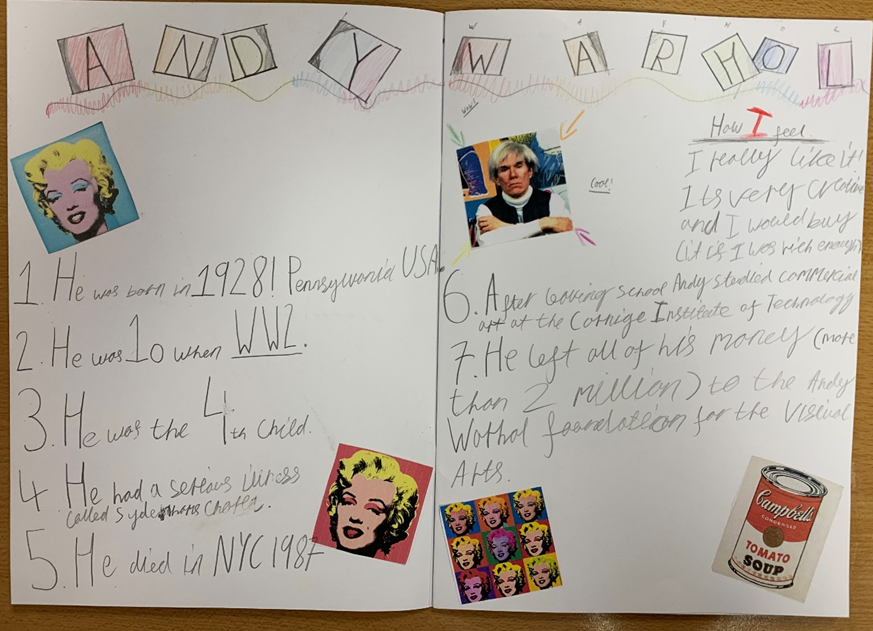 ANDY
WARHOL
W A R H O L
WOW!
Cool!
How I feel
I really like it!
Its very creative
and I would buy
(it is I was rich enough)
1. He was born in 1928! Pennsylvania USA.
2. He was 10 when WW2.
3. He was the 4th child.
4. He had a serious illness
called Chorea.
5. He died in NYC 1987
6. After leaving school Andy studied commercial
art at the Cornige Institute of Technology
7. He left all of his money (more
than 2 million) to the Andy
Wothol foundation for the Visiual
Arts.
Campbell's
CONDENSED
TOMATO
SOUP